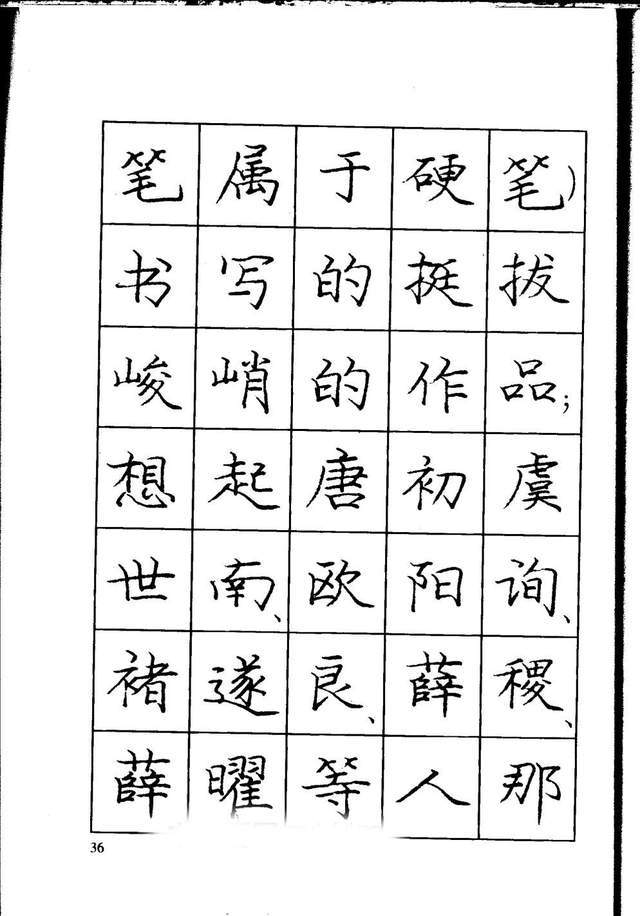 笔属于硬笔）
书写的挺拔
峻峭的作品；
想起唐初虞
世南、欧阳询、
褚遂良、薛稷、
薛曜等人那
36